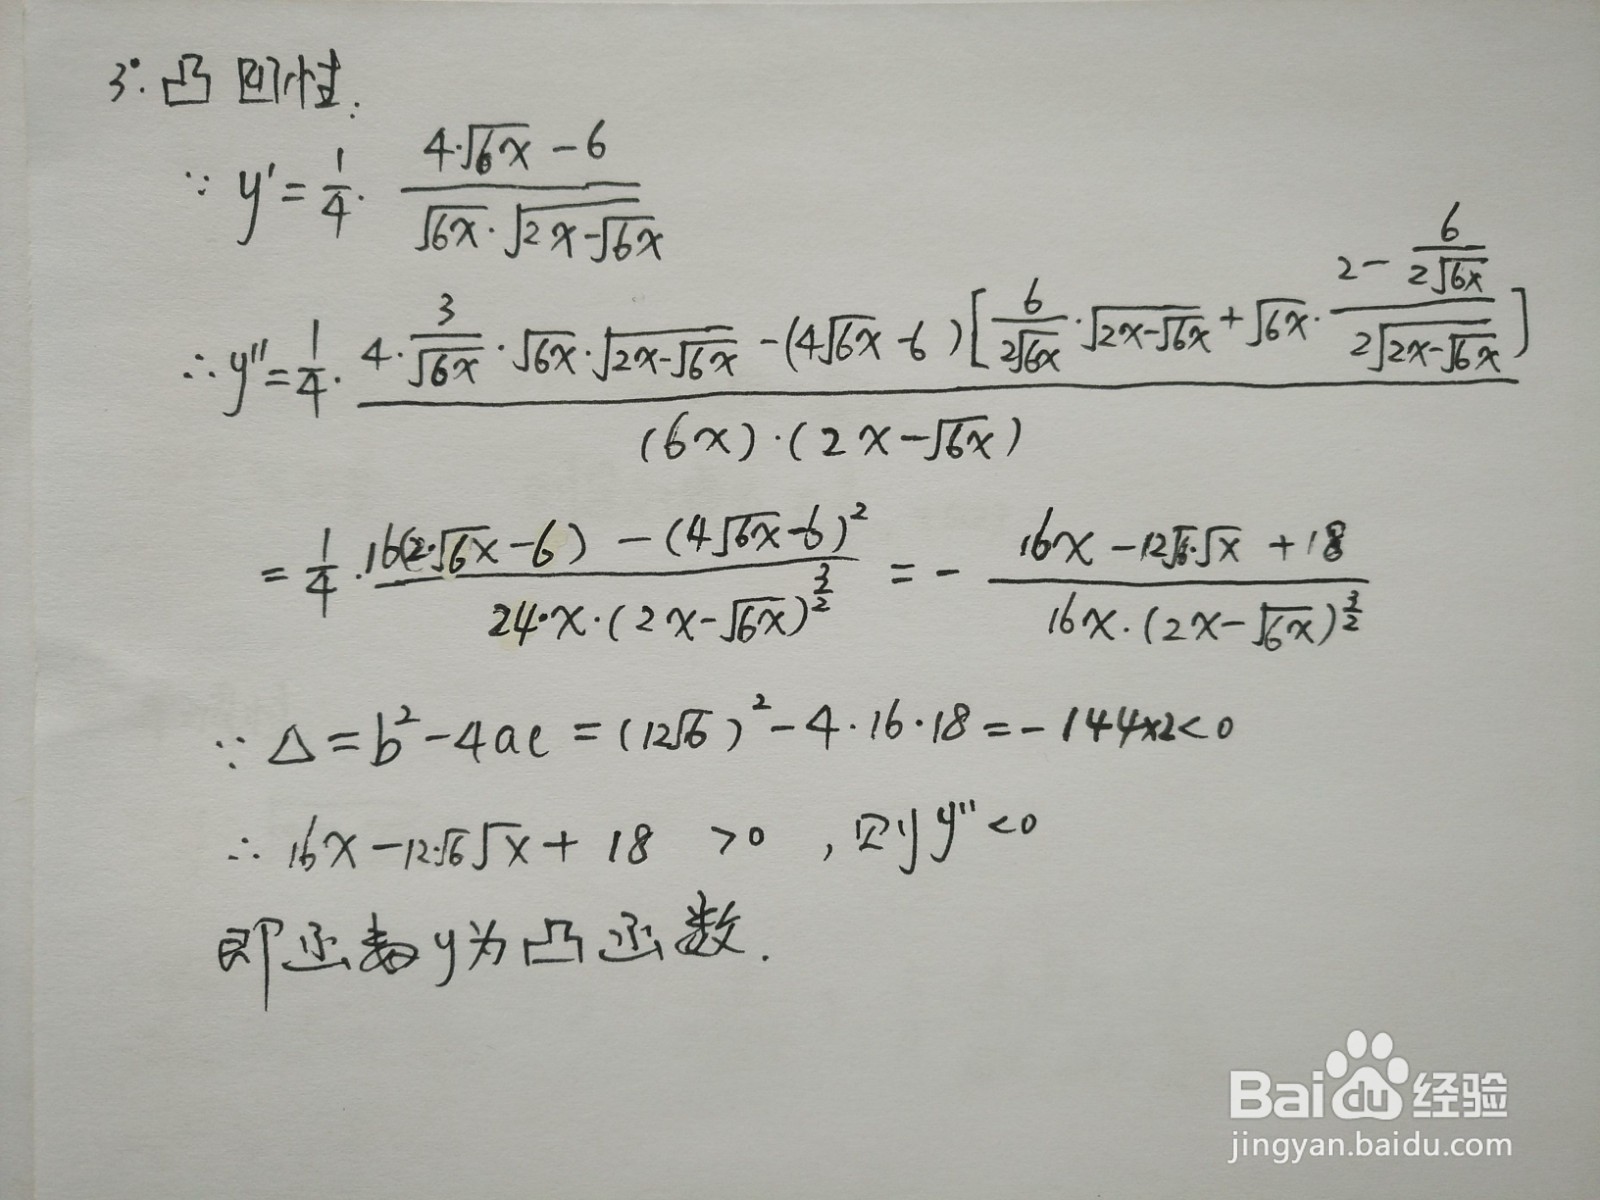 3°. 凸凹性:
∵ y' = 1/4 · (4·√6x − 6)/(√6x · √(2x−√6x))
∴ y'' = 1/4 · {4 · 3/√6x · √6x · √(2x−√6x) − (4√6x −6)[6/(2√6x) · √(2x−√6x) + √6x · (2 − 6/(2√6x))/(2√(2x−√6x))]}/((6x)·(2x−√6x))
= 1/4 · (16(2·√6x −6) − (4√6x −6)²)/(24·x·(2x−√6x)^(3/2)) = − (16x −12√6·√x +18)/(16x·(2x−√6x)^(3/2))
∵ △ = b² −4ac = (12√6)² − 4·16·18 = −144×2<0
∴ 16x −12√6√x + 18 >0 , 则y''<0
即函数y为凸函数.
Bai du 经验
jingyan.baidu.com